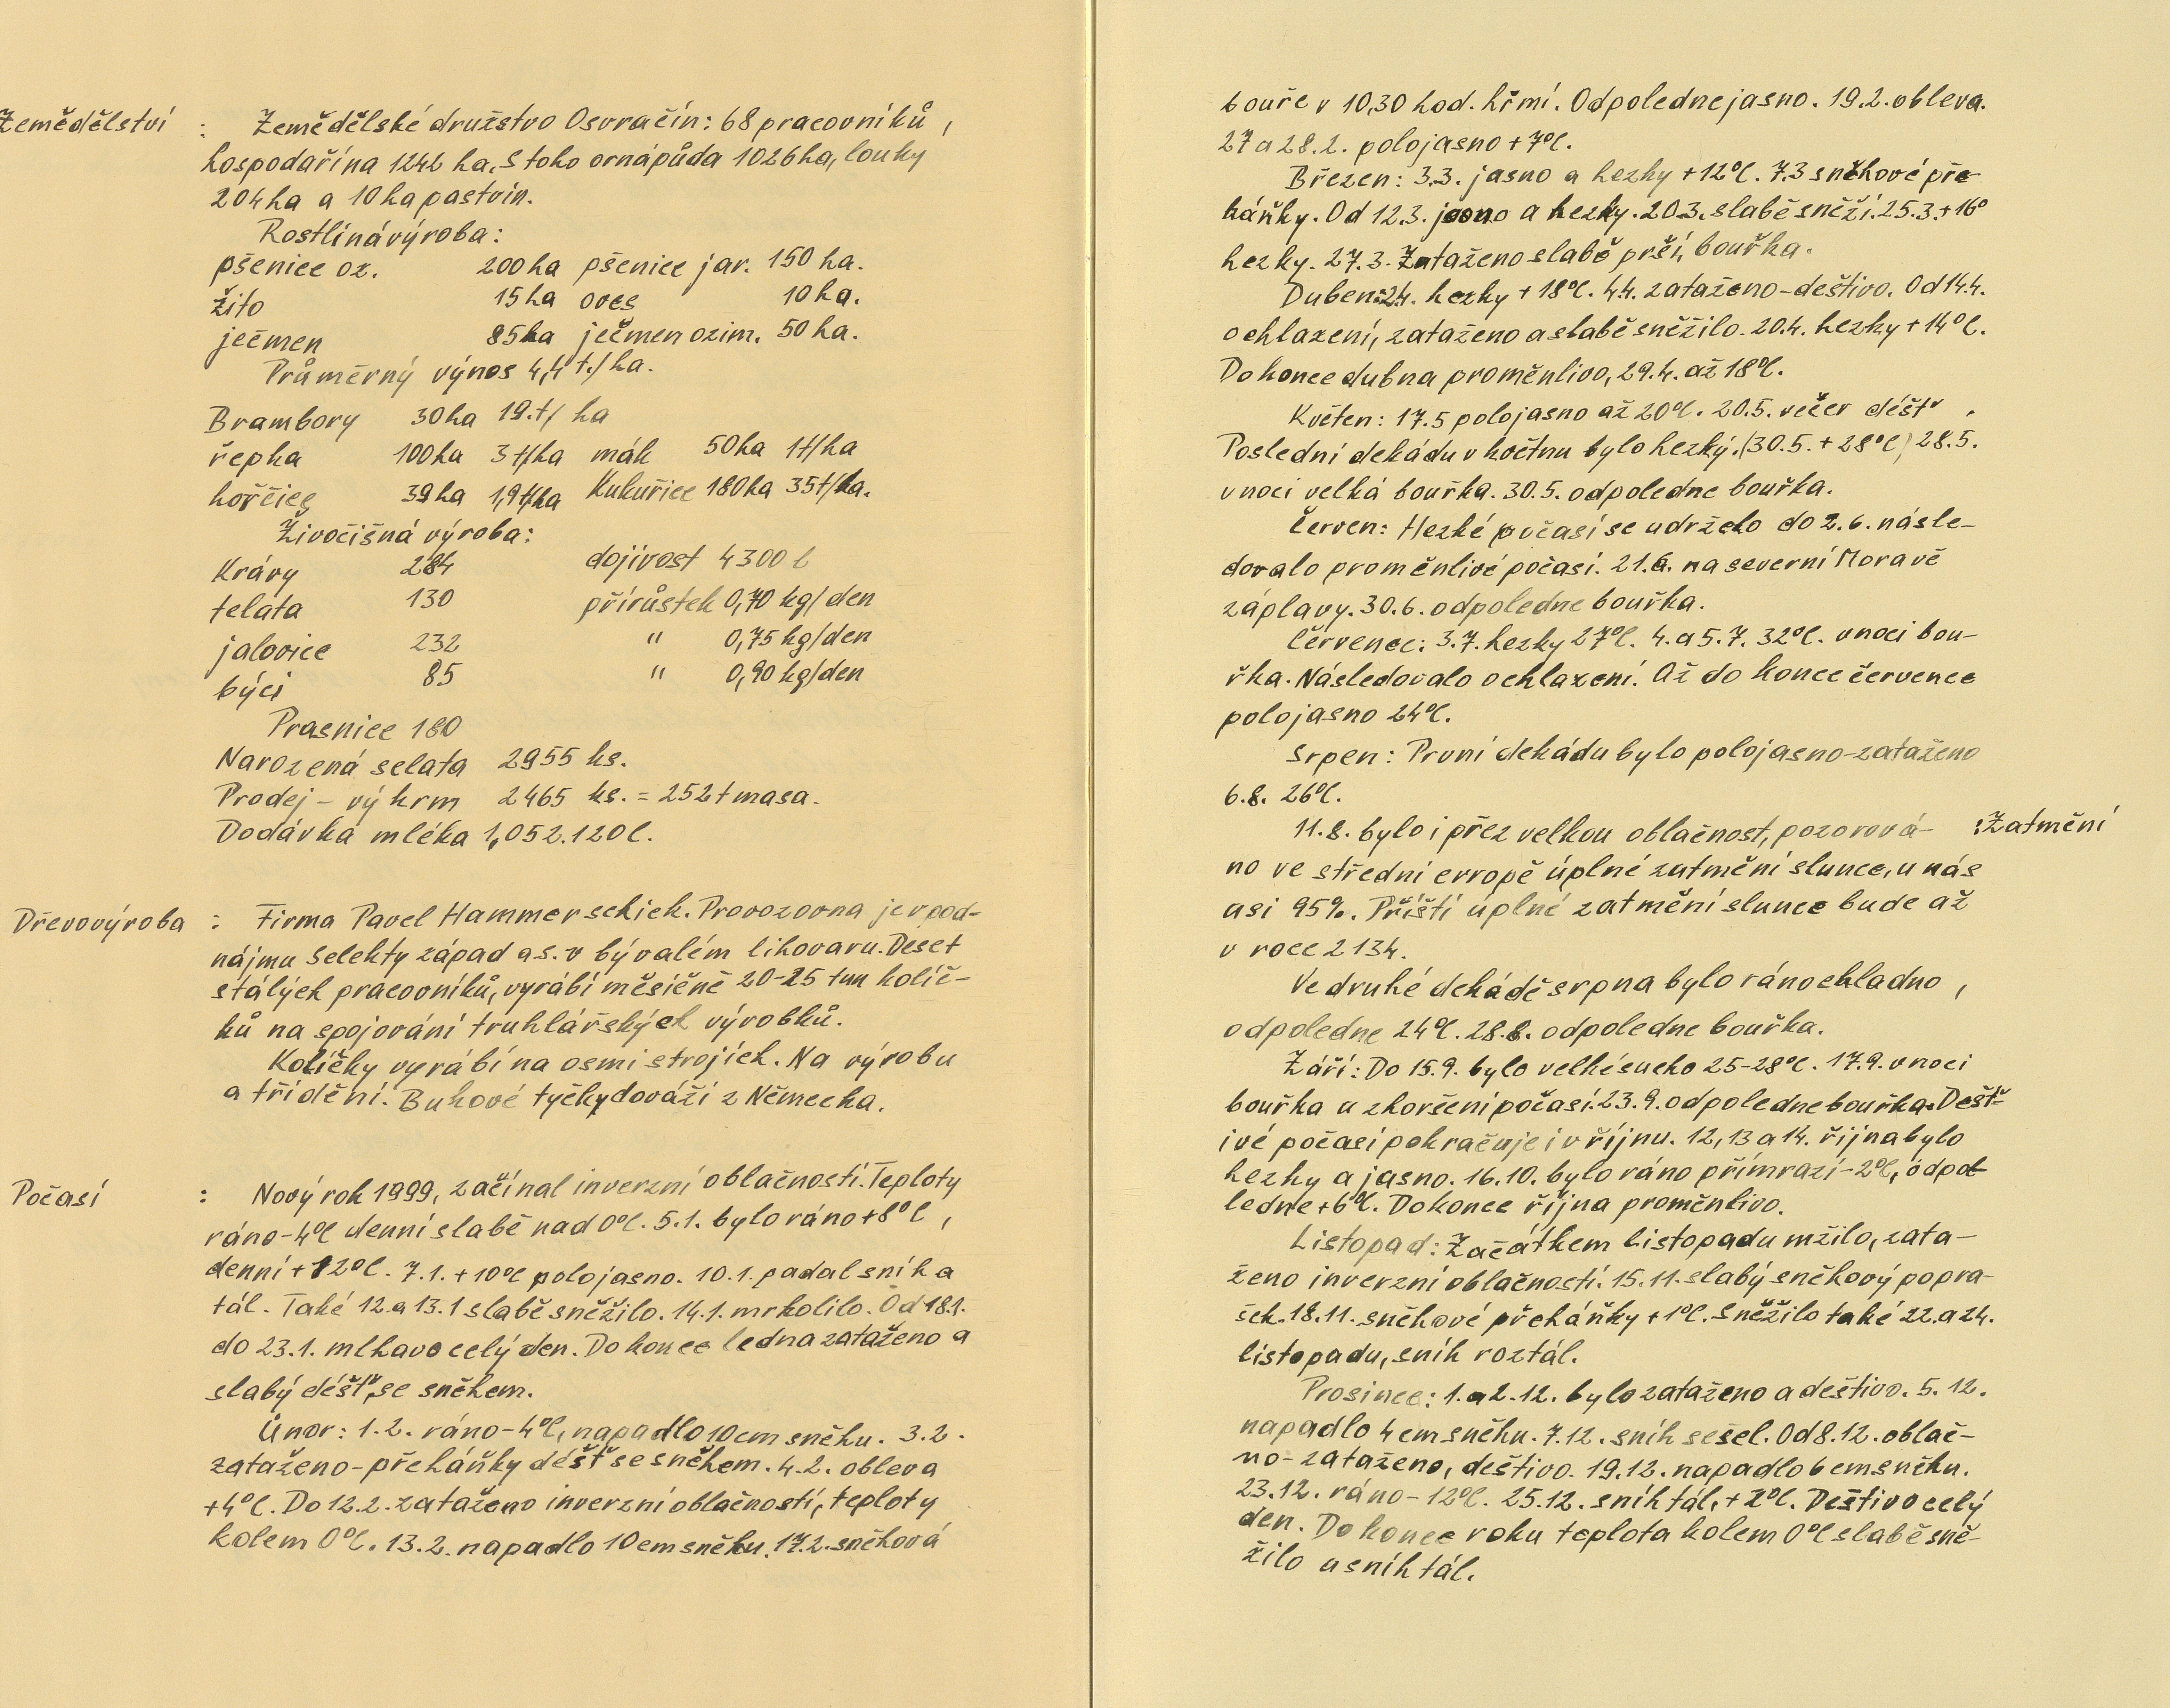 Zemědělství : Zemědělské družstvo Osvračín: 68 pracovníků,
hospodaří na 1242 ha. S toho orná půda 1026 ha, louky
204 ha a 10 ha pastvin.
Rostliná výroba:
pšenice oz. 200 ha pšenice jar. 150 ha.
žito 15 ha oves 10 ha.
ječmen 85 ha ječmen ozim. 50 ha.
Průměrný výnos 4,4 t./ha.
Brambory 30 ha 19.t/ ha
řepka 100 ha 3 t/ha mák 50 ha 1t/ha
hořčice 39 ha 1,9 t/ha Kukuřice 180 ha 35 t/ha.
Živočišná výroba:
Krávy 284 dojivost 4300 l
telata 130 přírůstek 0,70 kg/den
jalovice 232 " 0,75 kg/den
býci 85 " 0,90 kg/den
Prasnice 180
Narozená selata 2955 ks.
Prodej - výkrm 2465 ks. = 252 t masa.
Dodávka mléka 1,052.120 l.
Dřevovýroba : Firma Pavel Hammerschick. Provozovna je v pod-
nájmu Selekty západ a.s. v bývalém lihovaru. Deset
stálých pracovníků, vyrábí měsíčně 20-25 tun kolíč-
ků na spojování truhlářských výrobků.
Kolíčky vyrábí na osmi strojích. Na výrobu
a třídění. Bukové tyčky dováží z Německa.
Počasí : Nový rok 1999, začínal inverzní oblačností. Teploty
ráno -4°C denní slabě nad 0°C. 5.1. bylo ráno +8°C,
denní +12°C. 7.1. +10°C polojasno. 10.1. padal sníh a
tál. Také 12. a 13.1 slabě sněžilo. 14.1. mrholilo. Od 18.1.
do 23.1. mlhavo celý den. Do konce ledna zataženo a
slabý déšť, se sněhem.
Únor: 1.2. ráno -4°C, napadlo 10 cm sněhu. 3.2.
zataženo - přeháňky déšť se sněhem. 4.2. obleva
+4°C. Do 12.2. zataženo inverzní oblačností, teploty
kolem 0°C. 13.2. napadlo 10 cm sněhu. 17.2. sněhová
bouře v 10,30 hod. hřmí. Odpoledne jasno. 19.2. obleva.
27 a 28.2. polojasno +7°C.
Březen: 3.3. jasno a hezky +12°C. 7.3 sněhové pře-
háňky. Od 12.3. jasno a hezky. 20.3. slabě sněží. 25.3. +16°
hezky. 27.3. Zataženo slabě prší, bouřka.
Duben: 2.4. hezky +18°C. 4.4. zataženo - deštivo. Od 14.4.
ochlazení, zataženo a slabě sněžilo. 20.4. hezky +14°C.
Do konce dubna proměnlivo, 29.4. až 18°C.
Květen: 17.5 polojasno až 20°C. 20.5. večer déšť.
Poslední dekádu v květnu bylo hezký. (30.5. +28°C) 28.5.
v noci velká bouřka. 30.5. odpoledne bouřka.
Červen: Hezké počasí se udrželo do 2.6. násle-
dovalo proměnlivé počasí. 21.6. na severní Moravě
záplavy. 30.6. odpoledne bouřka.
Červenec: 3.7. hezky 27°C. 4. a 5.7. 32°C. v noci bou-
řka. Následovalo ochlazení. Až do konce července
polojasno 24°C.
Srpen: První dekádu bylo polojasno - zataženo
6.8. 26°C.
11.8. bylo i přez velkou oblačnost, pozorová- : Zatmění
no ve střední evropě úplné zatmění slunce, u nás
asi 95%. Příští úplné zatmění slunce bude až
v roce 2134.
Ve druhé dekádě srpna bylo ráno chladno,
odpoledne 24°C. 28.8. odpoledne bouřka.
Září: Do 15.9. bylo velké sucho 25-28°C. 17.9. v noci
bouřka a zhoršení počasí. 23.9. odpoledne bouřka. Dešť-
ivé počasí pokračuje i v říjnu. 12, 13 a 14. října bylo
hezky a jasno. 16.10. bylo ráno přímrazí -2°C, odpo-
ledne +6°C. Do konce října proměnlivo.
Listopad: Začátkem listopadu mžilo, zata-
ženo inverzní oblačností. 15.11. slabý sněhový popra-
šek. 18.11. sněhové přeháňky +1°C. Sněžilo také 22. a 24.
listopadu, sníh roztál.
Prosinec: 1. a 2.12. bylo zataženo a deštivo. 5.12.
napadlo 4 cm sněhu. 7.12. sníh sešel. Od 8.12. oblač-
no - zataženo, deštivo. 19.12. napadlo 6 cm sněhu.
23.12. ráno -12°C. 25.12. sníh tál, +2°C. Deštivo celý
den. Do konce roku teplota kolem 0°C slabě sně-
žilo a sníh tál.